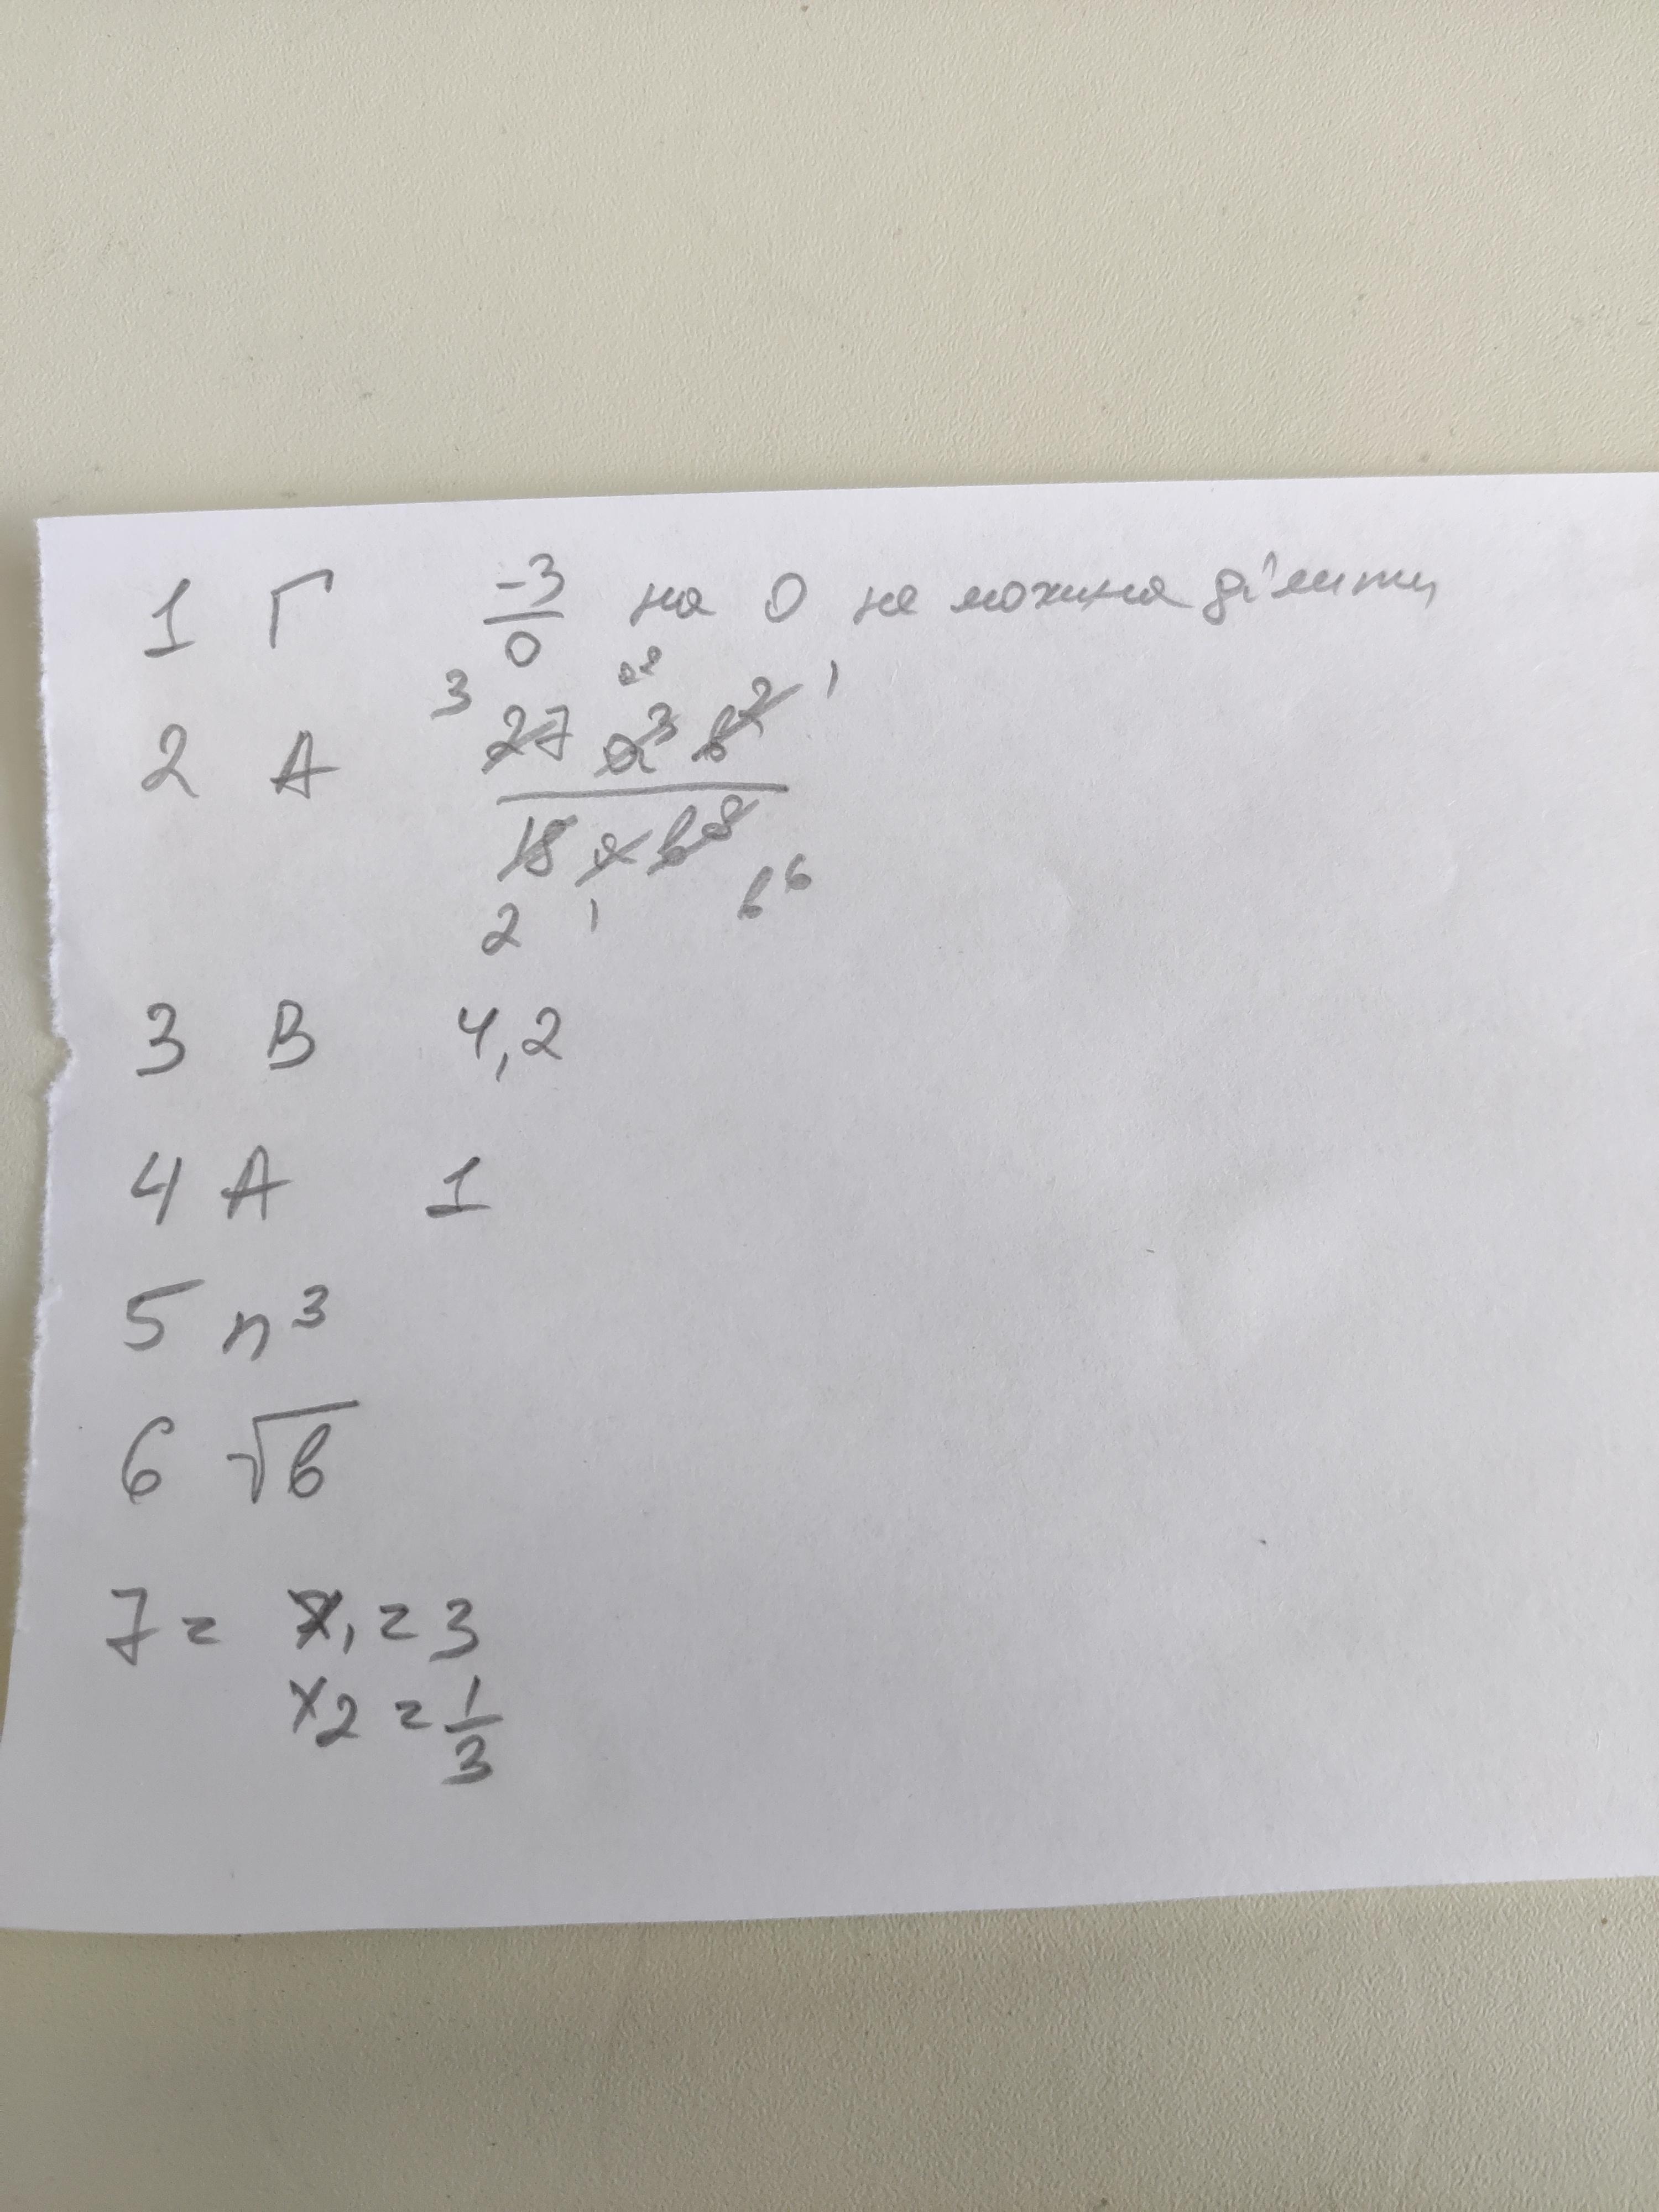 1 Г -3/0 на 0 не можна ділити
3 a² 1
2 А 27 a³ b²
18 a b⁸
2 1 b⁶
3 В 4,2
4 А 1
5 n³
6 √b
7 = x₁ = 3
x2 = 1/3